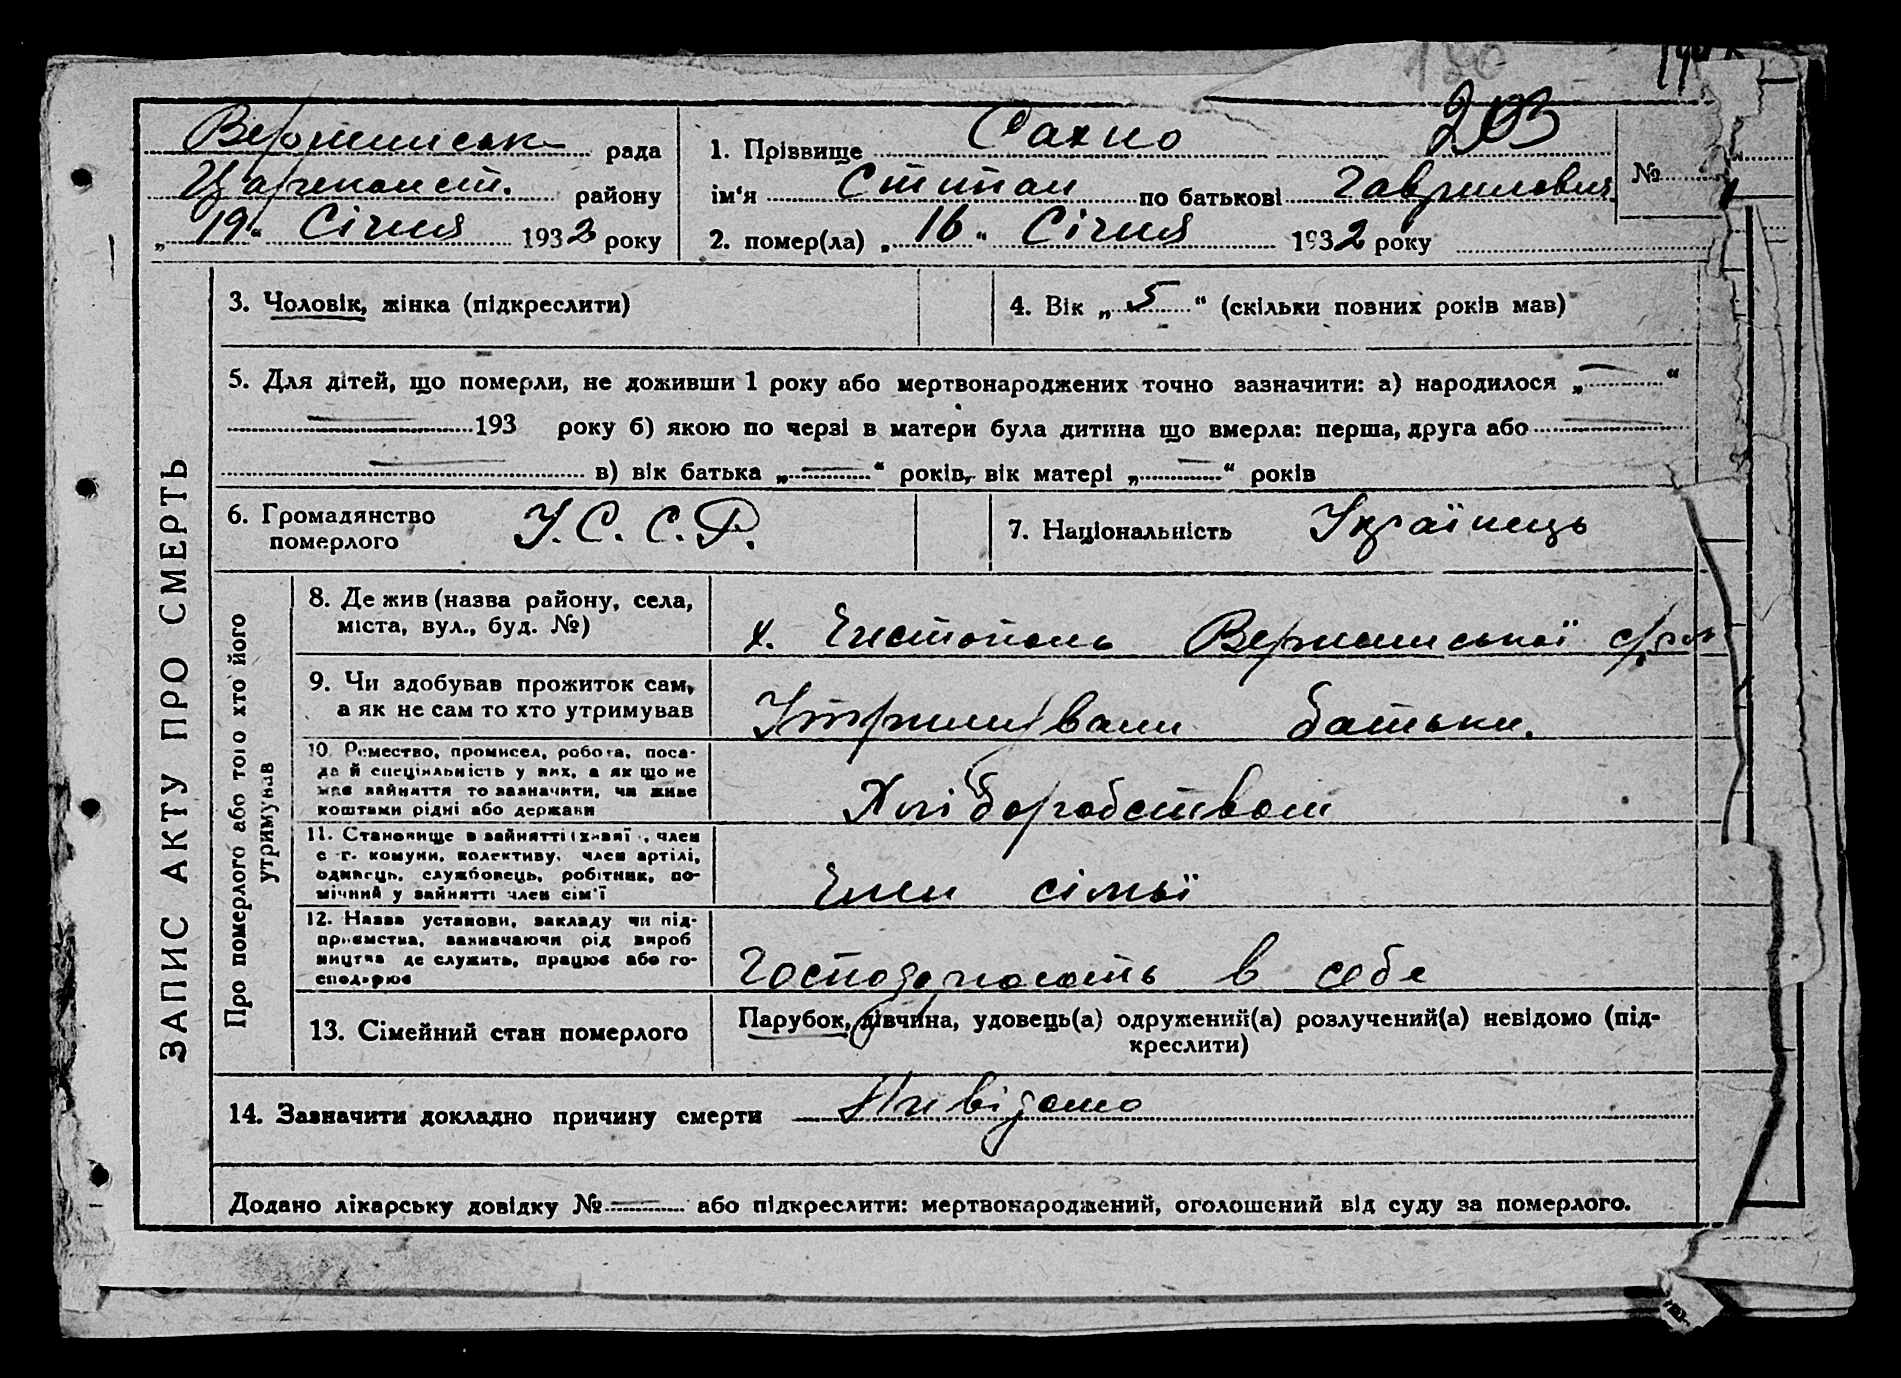 190
203
рада
1. Прізвище Сахно
№
района
Царичанськ. району
ім‘я Степан по батькові Гаврилович
„19“ Січня 1932 року
2. помер(ла) „16“ Січня 1932 року
ЗАПИС АКТУ ПРО СМЕРТЬ
3. Чоловік, жінка (підкреслити)
4. Вік „5“ (скільки повних років мав)
5. Для дітей, що померли, не доживши 1 року або мертвонароджених точно зазначити: а) народилося „—“
— 193 року б) якою по черзі в матери була дитина що вмерла: перша, друга або —
— в) вік батька „—“ років, вік матері „—“ років
6. Громадянство померлого У. С. С. Р.
7. Національність Українець
Про померлого або того хто його утримував
8. Де жив (назва району, села,
міста, вул., буд. №)
х. Чистополь
9. Чи здобував прожиток сам,
а як не сам то хто утримував
Утримували батьки.
10. Ремество, промисел, робота, поса-
да й спеціяльність у них, а як що не
має зайняття то зазначити, чи живе
коштами рідні або держави
Хліборобством
11. Становище в зайнятті (хазяї, член
с.-г. комуни, колективу, член артілі,
одинець, службовець, робітник, по-
мічний у зайнятті член сім'ї
Член сімьї
12. Назва установи, закладу чи під-
приємства, зазначаючи рід вироб
ництва де служить, працює або го-
сподарює
Господарюють в себе
13. Сімейний стан померлого
Парубок, дівчина, удовець(а) одружений(а) розлучений(а) невідомо (під-
креслити)
14. Зазначити докладно причину смерти Невідомо
Додано лікарську довідку № — або підкреслити: мертвонароджений, оголошений від суду за померлого.